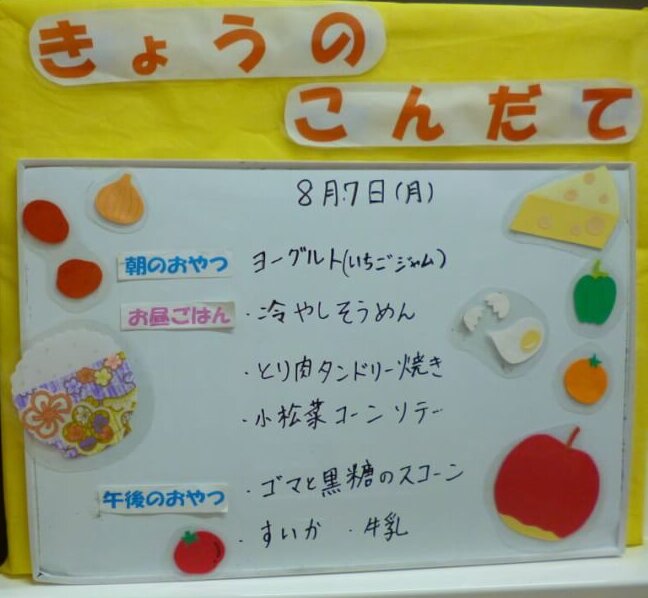 きょうの
こんだて
8月7日(月)
朝のおやつ ヨーグルト(いちごジャム)
お昼ごはん ・冷やしそうめん
・とり肉タンドリー焼き
・小松菜コーンソテー
午後のおやつ ・ゴマと黒糖のスコーン
・すいか ・牛乳